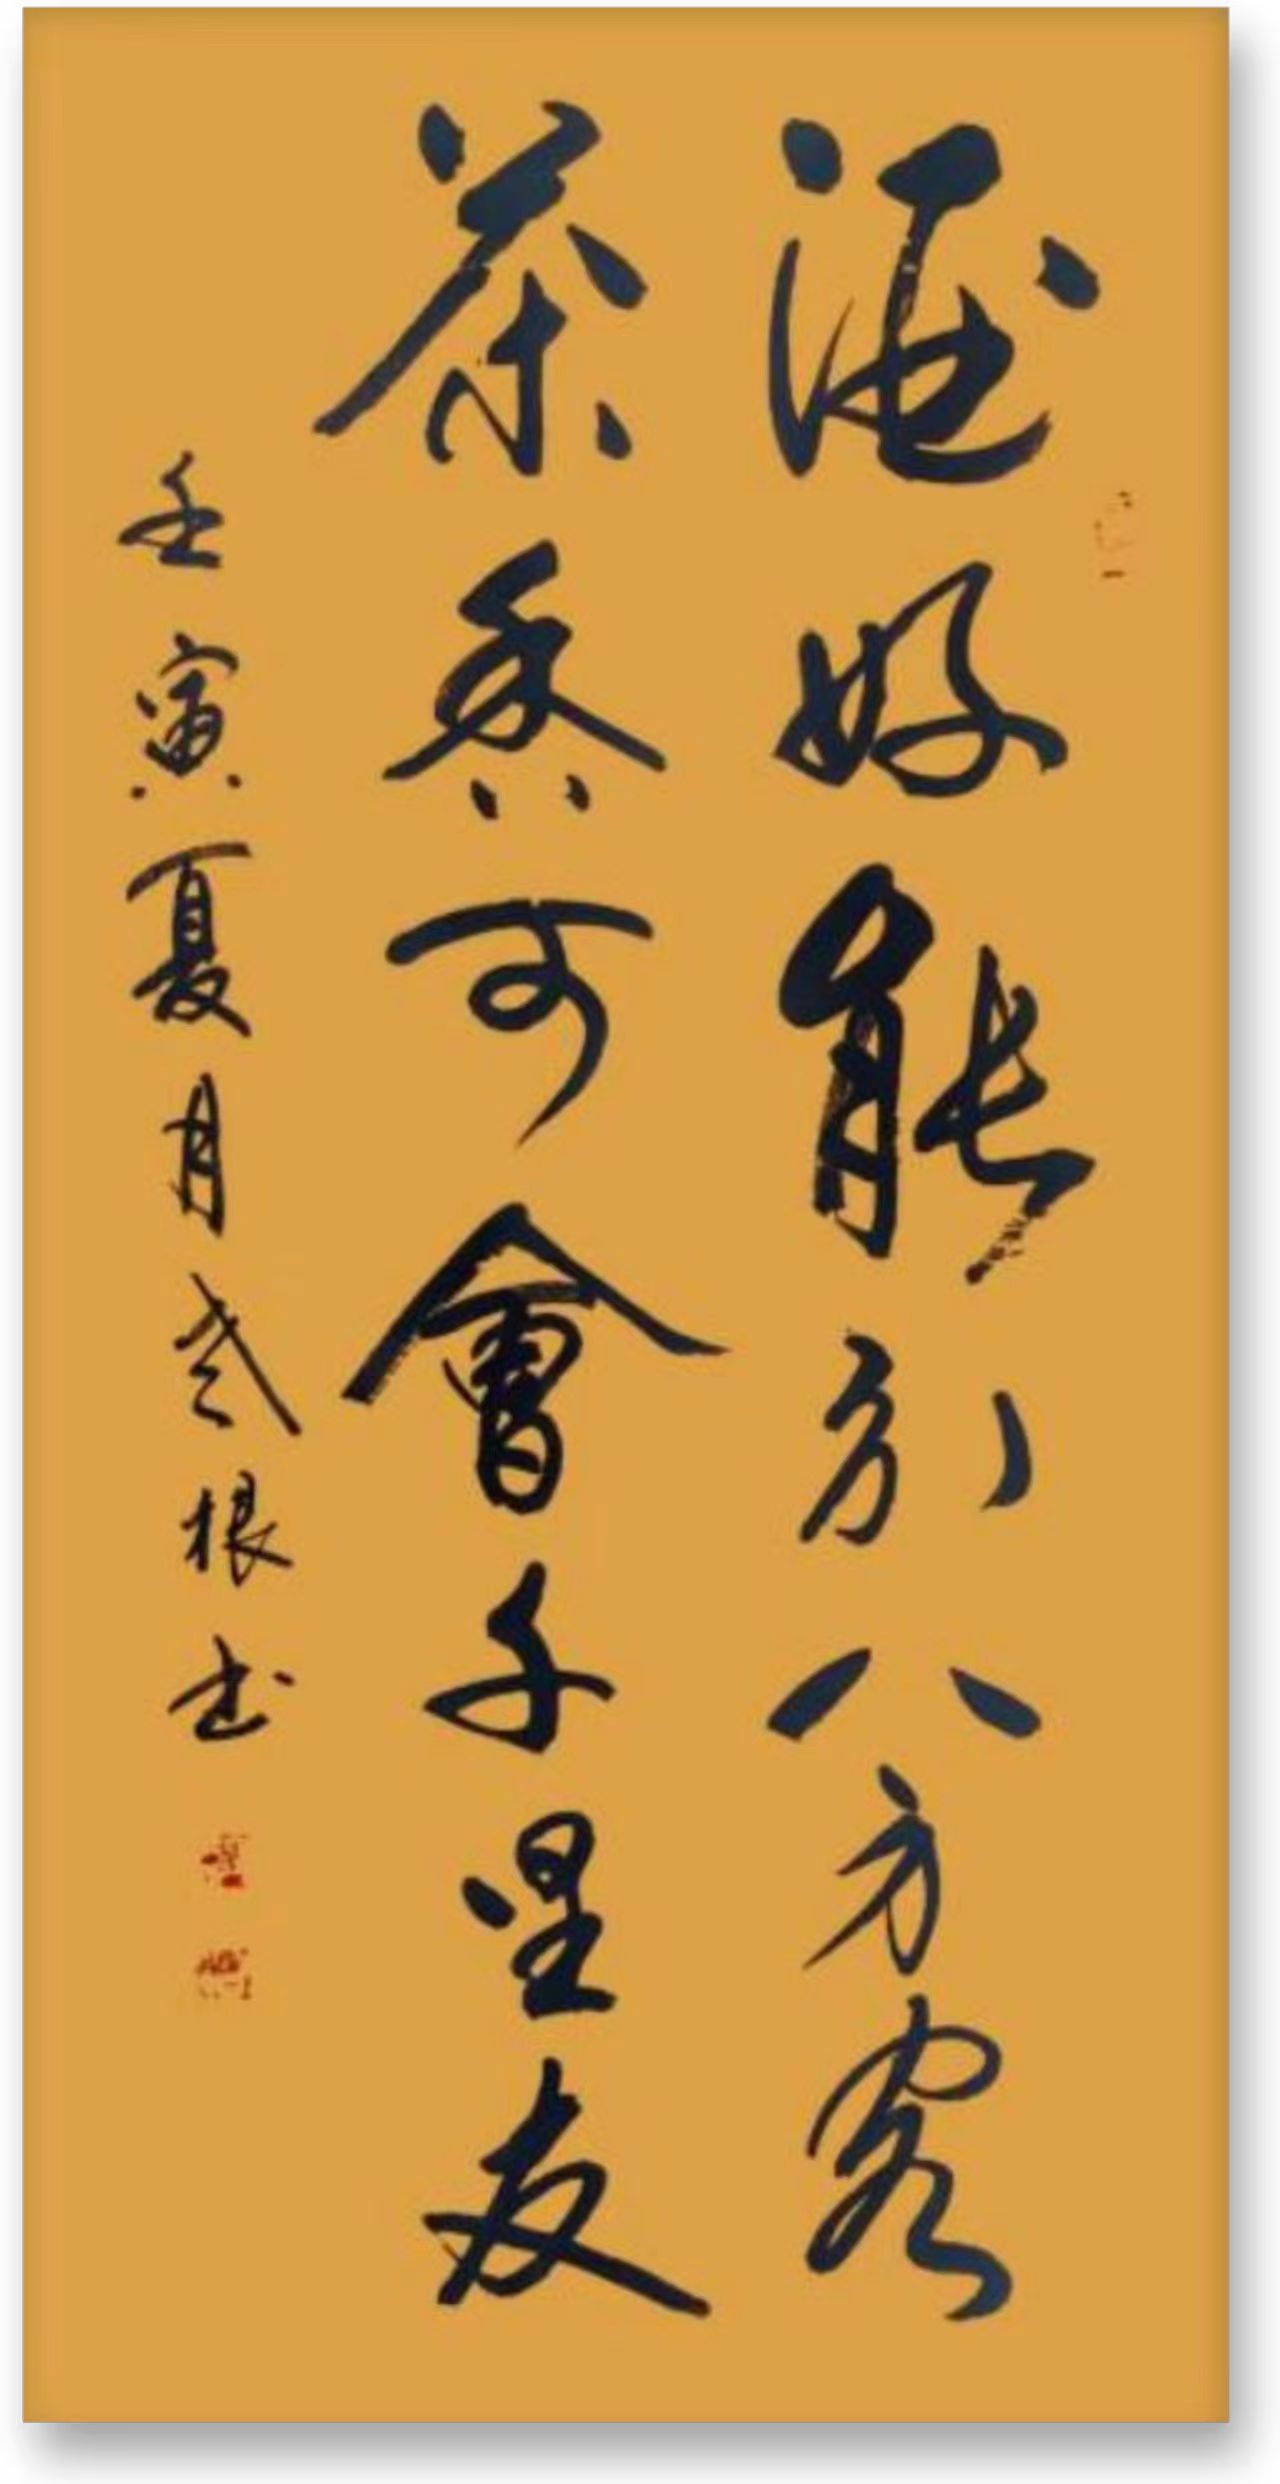 酒好能引八方客
茶香可會千里友
壬寅夏月根书